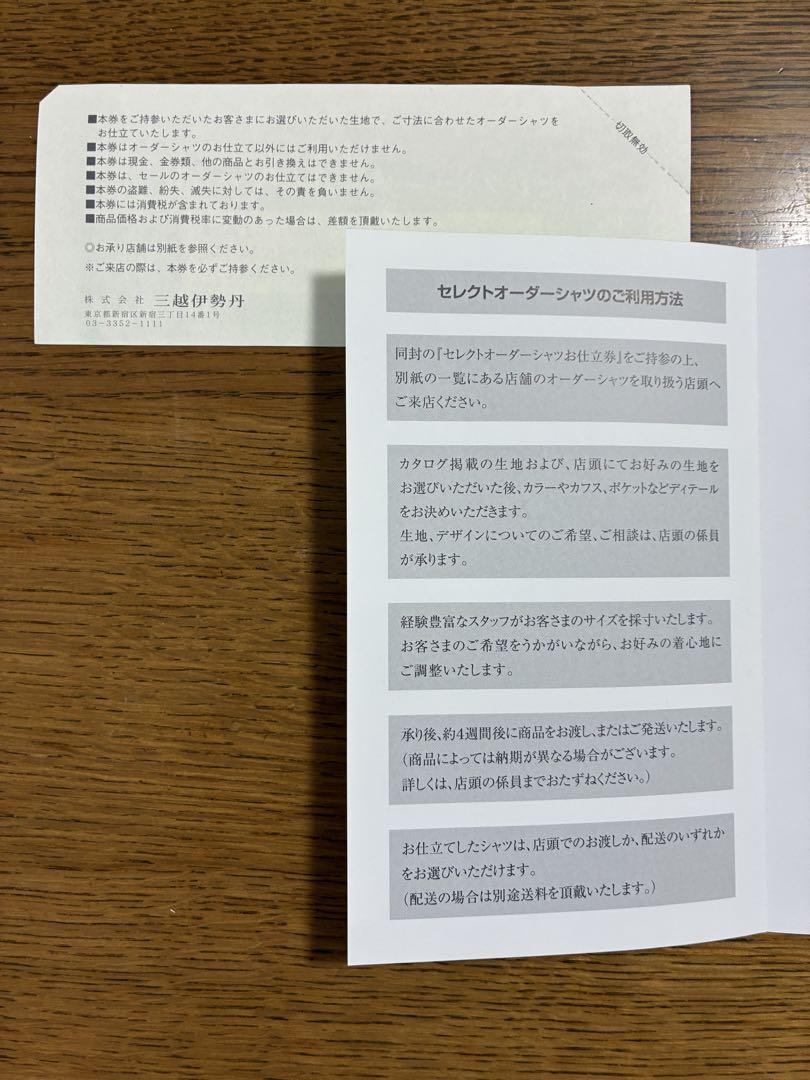 ■本券をご持参いただいたお客さまにお選びいただいた生地で、ご寸法に合わせたオーダーシャツを
お仕立ていたします。
■本券はオーダーシャツのお仕立て以外にはご利用いただけません。
■本券は現金、金券類、他の商品とお引き換えはできません。
■本券は、セールのオーダーシャツのお仕立てはできません。
■本券の盗難、紛失、滅失に対しては、その責を負いません。
■本券には消費税が含まれております。
■商品価格および消費税率に変動のあった場合は、差額を頂戴いたします。
◎お承り店舗は別紙を参照ください。
※ご来店の際は、本券を必ずご持参ください。
株式会社 三越伊勢丹
東京都新宿区新宿三丁目14番1号
03-3352-1111
切取無効
セレクトオーダーシャツのご利用方法
同封の『セレクトオーダーシャツお仕立券』をご持参の上、
別紙の一覧にある店舗のオーダーシャツを取り扱う店頭へ
ご来店ください。
カタログ掲載の生地および、店頭にてお好みの生地を
お選びいただいた後、カラーやカフス、ポケットなどディテール
をお決めいただきます。
生地、デザインについてのご希望、ご相談は、店頭の係員
が承ります。
経験豊富なスタッフがお客さまのサイズを採寸いたします。
お客さまのご希望をうかがいながら、お好みの着心地に
ご調整いたします。
承り後、約4週間後に商品をお渡し、またはご発送いたします。
（商品によっては納期が異なる場合がございます。
詳しくは、店頭の係員までおたずねください。）
お仕立てしたシャツは、店頭でのお渡しか、配送のいずれか
をお選びいただけます。
（配送の場合は別途送料を頂戴いたします。）